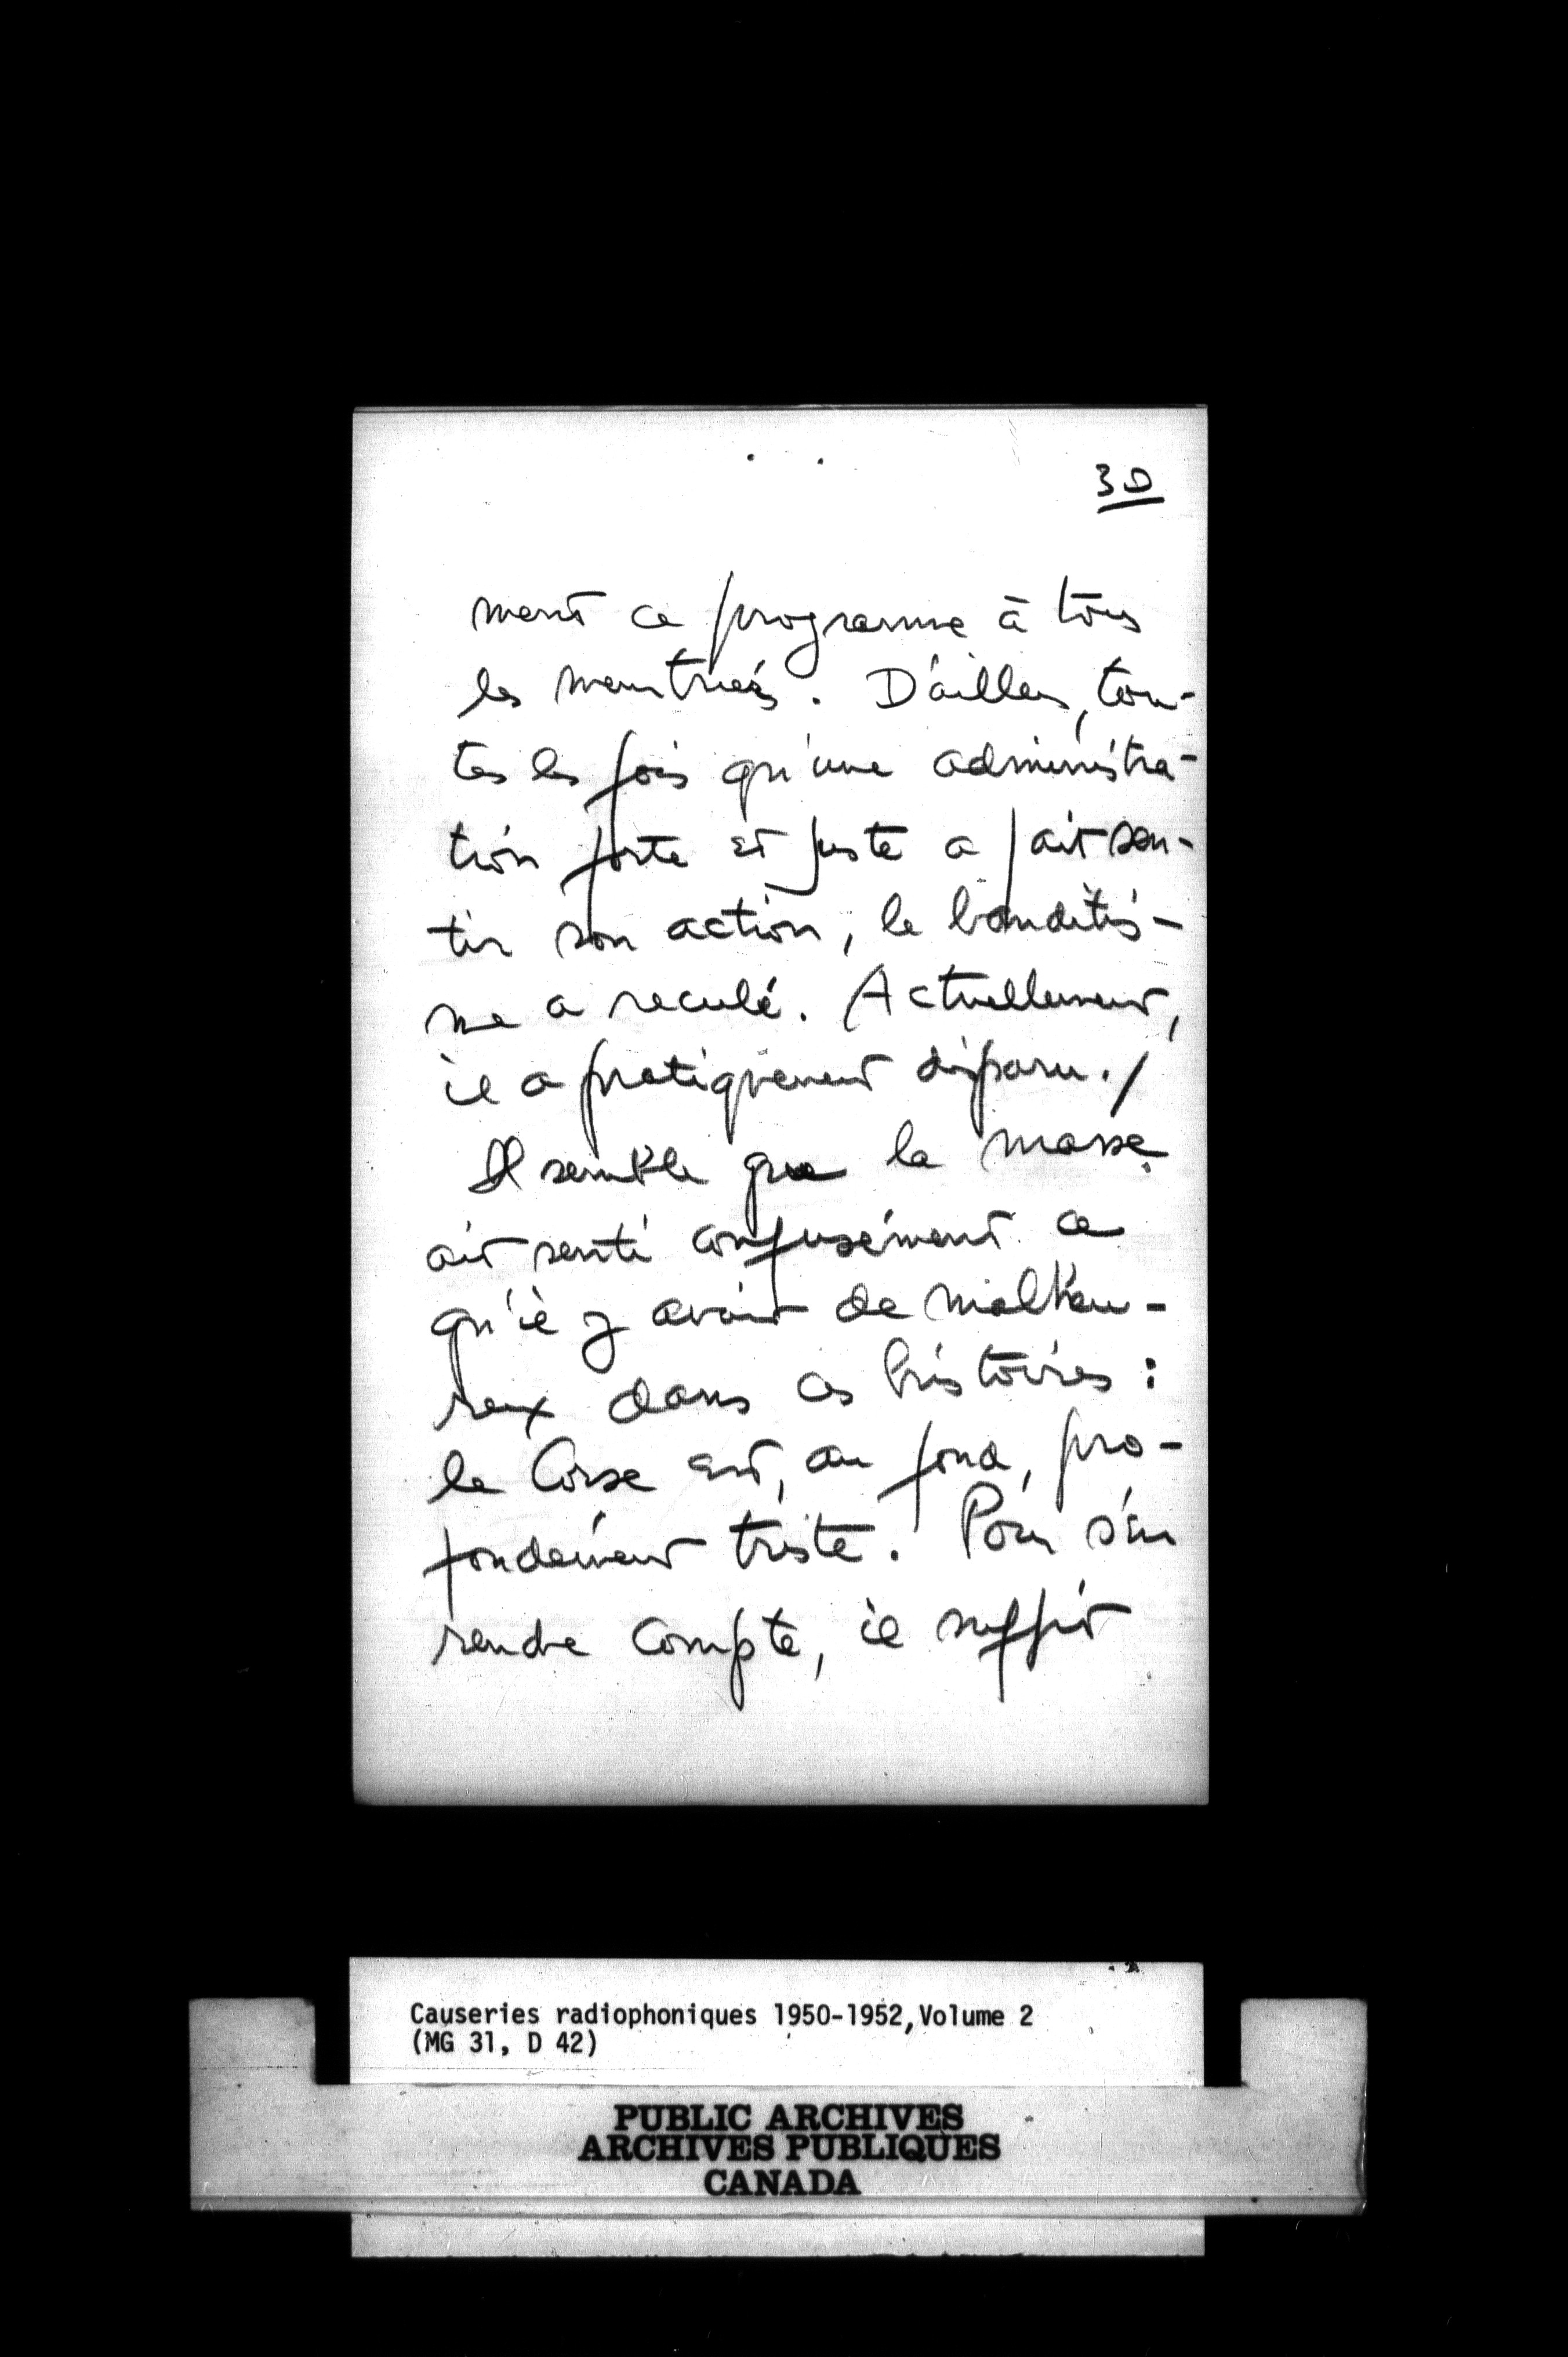 30
ment ce programme à tous
les meurtriers. D'ailleurs, tou-
tes les fois qu'une administra-
tion forte et juste a fait sen-
tir son action, le banditis-
me a reculé. Actuellement,
il a pratiquement disparu./
Il semble que la masse
ait senti confusément ce
qu'il y avait de malheu-
reux dans ces histoires :
le Corse est, au fond, pro-
fondément triste. Pour s'en
rendre compte, il suffit
Causeries radiophoniques 1950-1952, Volume 2
(MG 31, D 42)
PUBLIC ARCHIVES
ARCHIVES PUBLIQUES
CANADA